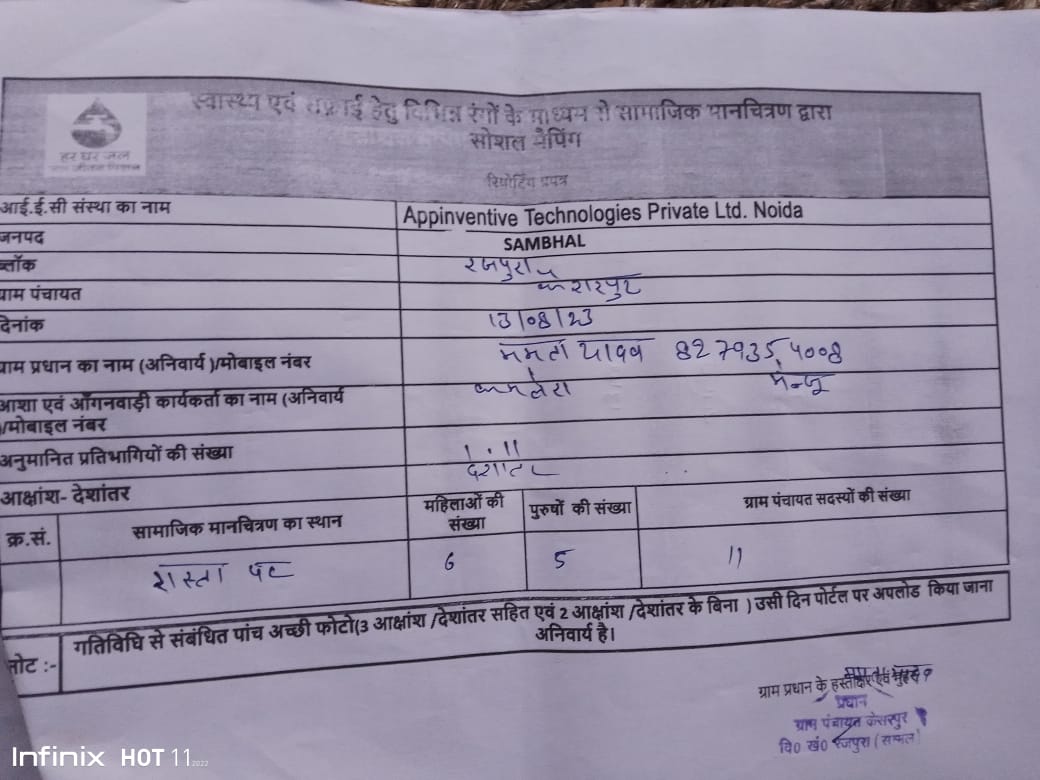 स्वास्थ्य एवं सफ़ाई हेतु विभिन्न रंगों के माध्यम से सामाजिक मानचित्रण द्वारा
सोशल मैपिंग
हर घर जल
रिपोर्टिंग प्रपत्र
आई.ई.सी संस्था का नाम Appinventive Technologies Private Ltd. Noida
जनपद SAMBHAL
ब्लॉक रजपुरा
ग्राम पंचायत केशरपुर
दिनांक 13/08/23
ग्राम प्रधान का नाम (अनिवार्य )/मोबाइल नंबर ममता यादव 8279354008
आशा एवं आँगनवाड़ी कार्यकर्ता का नाम (अनिवार्य कमलेश मन्जू
)/मोबाइल नंबर
अनुमानित प्रतिभागियों की संख्या 11
आक्षांश- देशांतर
क्र.सं. सामाजिक मानचित्रण का स्थान महिलाओं की संख्या पुरुषों की संख्या ग्राम पंचायत सदस्यों की संख्या
रास्ता पर 6 5 11
नोट :- गतिविधि से संबंधित पांच अच्छी फोटो(3 आक्षांश /देशांतर सहित एवं 2 आक्षांश /देशांतर के बिना ) उसी दिन पोर्टल पर अपलोड किया जाना
अनिवार्य है।
ग्राम प्रधान के हस्ताक्षर एवं मुहर
प्रधान
ग्राम पंचायत केसरपुर
वि० खं० रजपुरा (सम्भल)
Infinix HOT 11 2022